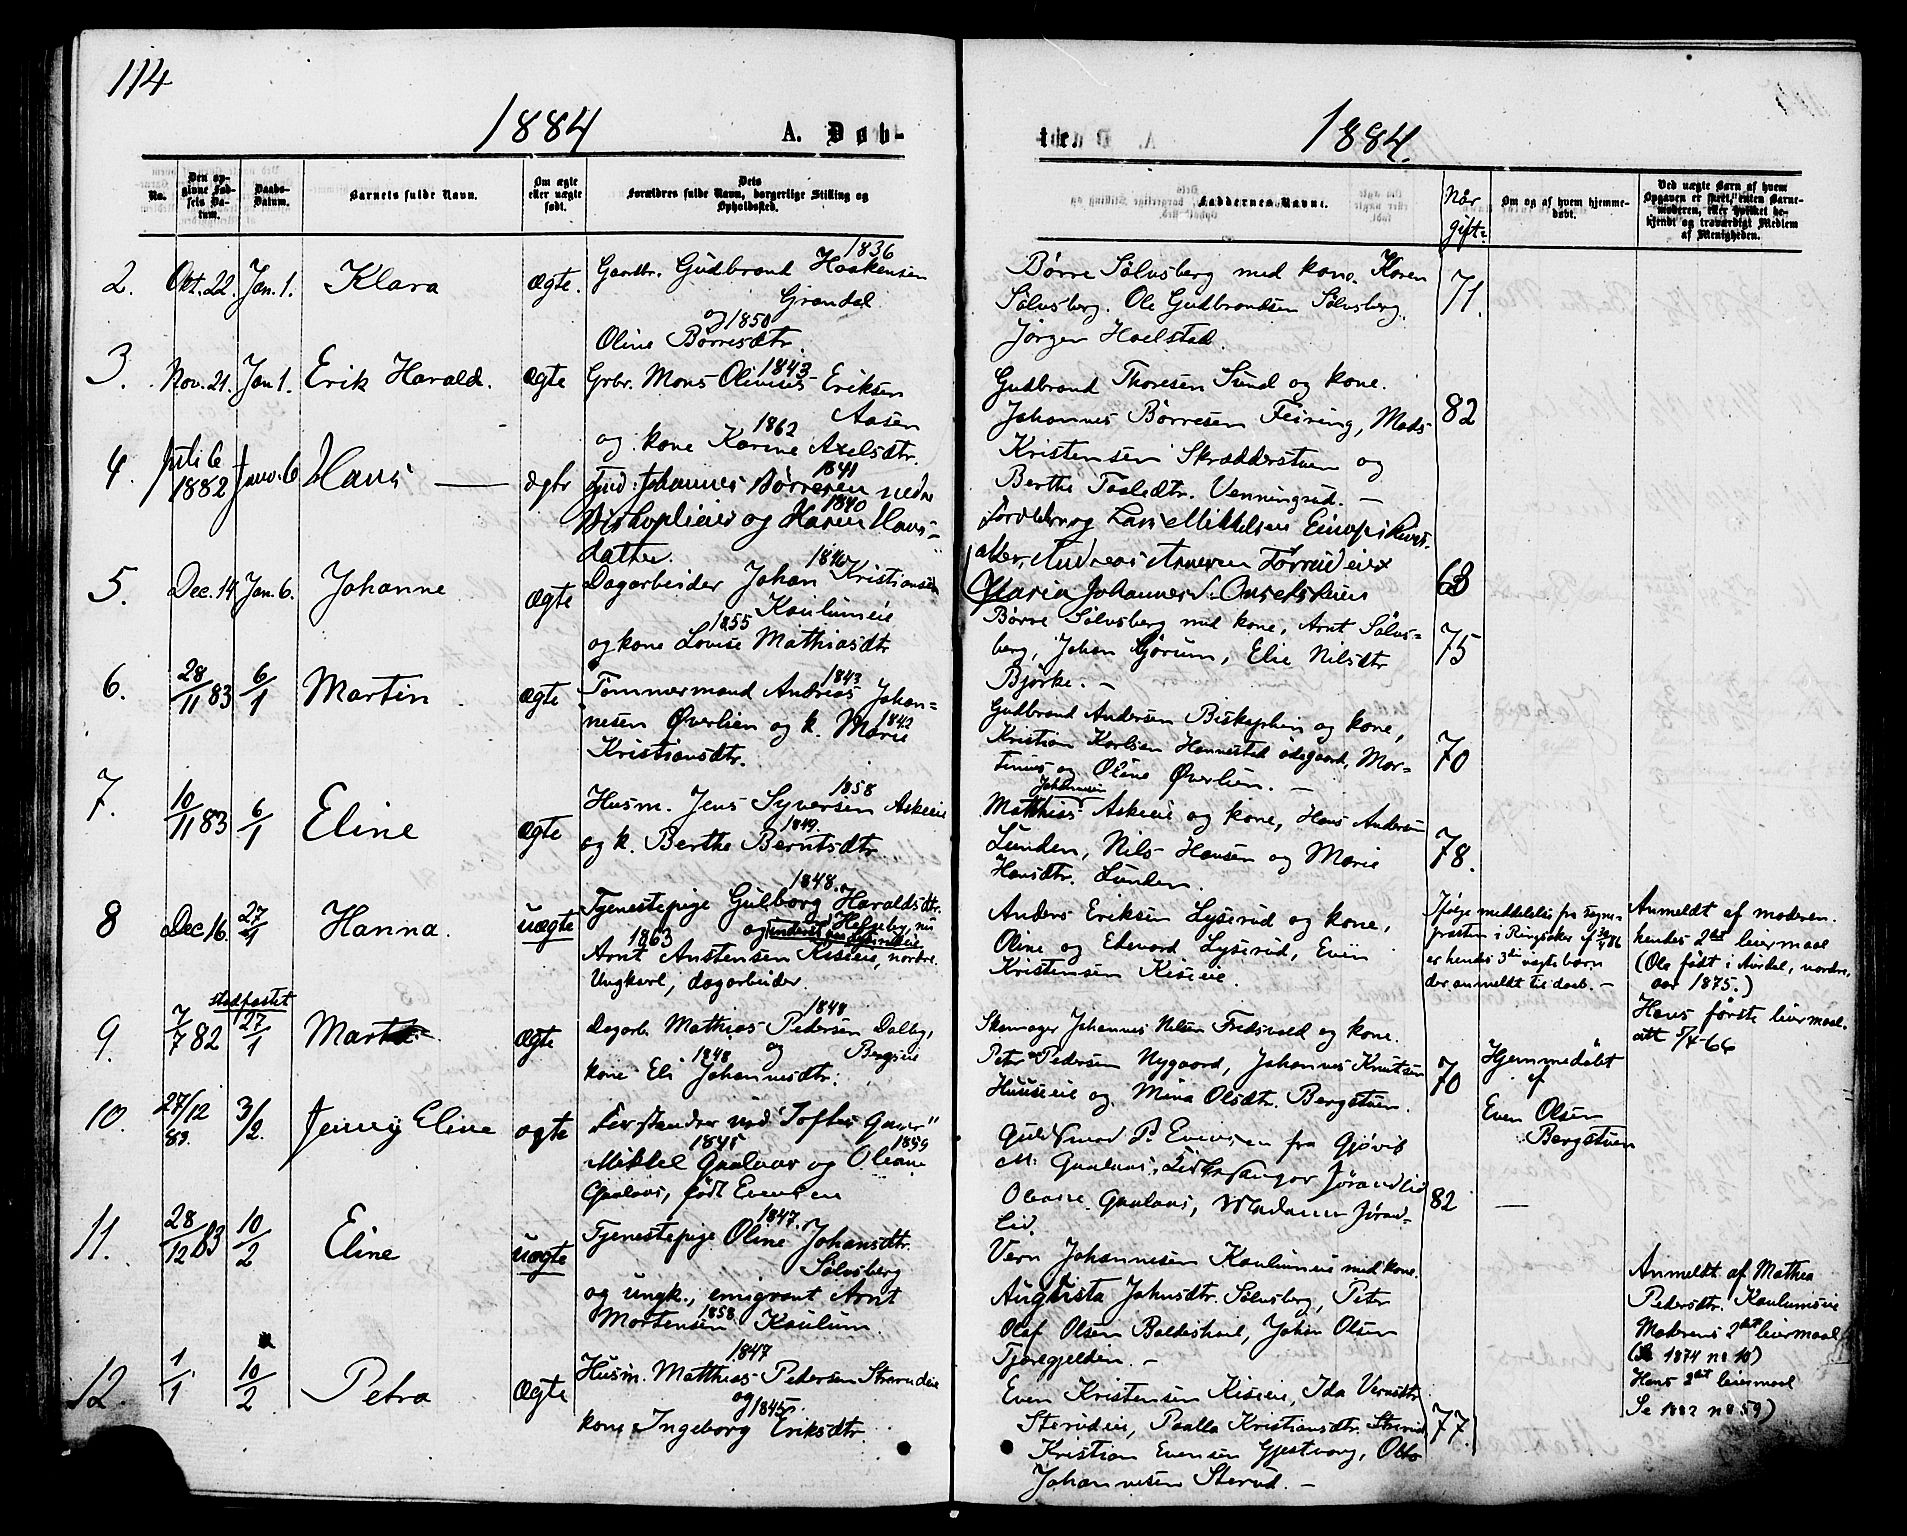 114
1884
A. Døb-
1884.
No.
Den opgivne Fødsels Datum.
Daabs-Datum.
Barnets fulde Navn.
Om ægte eller uægte født.
Dets Forældres fulde Navn, borgerlige Stilling og Opholdssted.
Faddernes Navne.
Når gift?
Om og af hvem hjemmedøbt.
Ved uægte Barn af hvem Opgaven er skeet, enten Barnemoderen, eller hvilket bekjendt og troværdigt Medlem af Menigheden.
2. Okt. 22. Jan. 1. Klara ægte.
1836
Gaardbr. Gudbrand Haakensen
Grøndal
og 1850
Oline Børresdtr.
Børre Sølvsberg med kone. Karen
Sølvsberg. Ole Gudbrandsen Sølvsberg.
Jørgen Hoelstad.
71.
3. Nov. 21. Jan 1. Erik Harald. ægte
1843
Grbr. Mons Olivius Eriksen
Aasen
1862
og kone Karine Axelsdtr.
Gudbrand Thoresen Sund og kone.
Johannes Børresen Feiring, Mads
Kristensen Skrædderstuen og
Berthe Paalsdtr. Venningrud. —
82
4. Juli 6 1882 Janv. 6 Hans — ægte
1841
Ind: Johannes Børresen nedre
1840
Biskoplieie og Karen Hans-
datter.
Forældre og Lars Mikkelsen
Andreas Arnesen
Maria Johannesd.
68
5. Dec. 14 Jan. 6. Johanne ægte
1846
Dagarbeider Johan Kristiansen
Kaulumeie
1855
og kone Lovise Mathiasdtr
Børre Sølvsberg med kone, Arnt Sølvs=
berg, Johan Gjørum, Elie Nilsdtr
Bjørke. —
75
6. 28/11 83 6/1 Martin. ægte
1843
Tømmermand Andreas Johan=
nesen Øverlien og k. Marie
1842
Kristiansdtr.
Gudbrand Andersen Biskoplien og kone,
Kristian Karlsen Hannestad ødegaard, Mar=
tinus og Oline Øverlien. —
70
7. 10/11 83 6/1 Eline ægte
1858
Husm. Jens Syversen Askeeie
1849.
og k. Berthe Berntsdtr
Johannesen
Matthias Askeeie og kone, Hans Andersen
Lunden, Nils Hansen og Marie
Hansdtr. Lunden.
78.
8 Dec 16. 27/1 Hanna. uægte
1848.
Tjenestepige Gulborg Haraldsdtr.
Helseby, nu
1863
Arnt Anstensen Kiseeie, nordre.
Ungkarl, dagarbeider.
Anders Eriksen Lyserud og kone,
Oline og Edevard Lyserud, Even
Kristensen Kiseeie.
Ifølge meddelelse fra sogne-
præsten i Ringsaker af 30/5 86
er hendes 3die uægte barn
der anmeldt til daab. —
Anmeldt af moderen.
hendes 2det leiermaal
(Ole født i Aurdal, nordre,
aar 1875.)
Hans første leiermaal.
att 5/4-66
9. 7/7 82 stadfæstet 27/1 ægte
1848
Dagarb. Mathias Pedersen Dalby,
og Bergseie
1848
kone Eli Johannesdtr.
Skomager Johannes Nelsen Fredsvold og kone.
Peter Pedersen Nygaard, Johannes Knutsen
Huuseeie og Mina Olsdtr. Bergstuen.
70
Hjemmedøbt
af
Even Olsen
Bergstuen
10. 27/12 83. 3/2. Jenny Eline ægte
Forstander ved Toftes Gave"
1845 1859
Mikkel Gaalaas og Oleane
Gaalaas, født Evensen
Guldsmed P. Evensen fra Gjøvik
M. Gaalaas, Jørandlid
Oleane Gaalaas, Madam Jørand-
lid.
82
—
11. 28/12 83 10/2 Eline uægte
1847.
Tjenestepige Oline Johansdtr.
Sølvsberg
og ungk., emigrant Arnt
1858
Mortensen Kaulum.
Vern Johannesen Kaulumeie med kone.
Augusta Johnsdtr. Sølvsberg, Peter
Olaf Olsen Baldeshoel, Johan Olsen
Tjoregjelden. —
Anmeldt af Mathea
Pedersdtr. Kaulumseie
Moderens 2det leiermaal
(Se 1874 no 10)
Hans 2det leiermaal
Se 1882 no 59)
12. 1/1 10/2 Petra ægte
1847
Husm. Matthias Pedersen Sterudeie
og 1845
kone Ingeborg Eriksdtr.
Even Kristensen Kiseeie, Ida Vernsdtr
Sterudeie, Paalla Kristiansdtr. Sterud
Kristian Evensen Gjestvang, Otto
Johannesen Sterud. —
77.